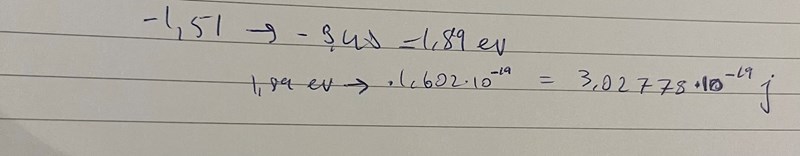 -1,51 → -3,40 = 1,89 ev
1,89 ev → ·1,602·10⁻¹⁹ = 3,02778·10⁻¹⁹ j